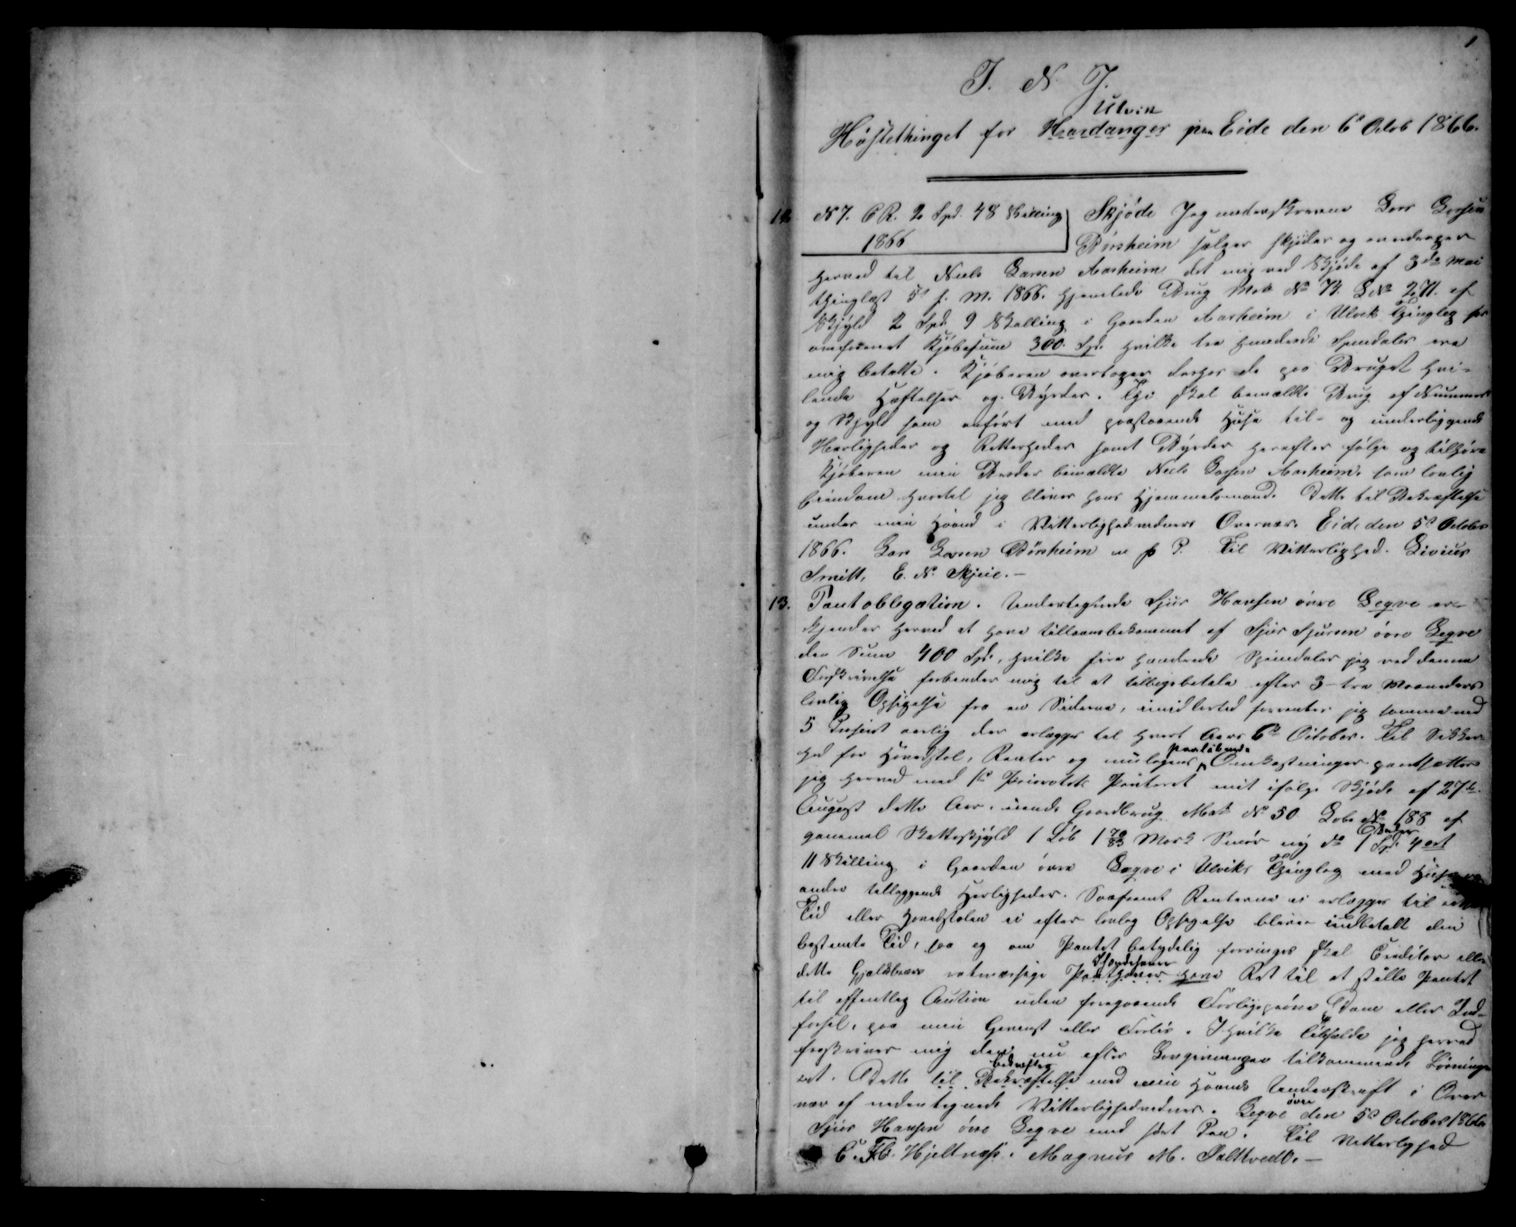 1
I. N. J.
Ulvik
Høstethinget for Hardanger paa Eide den 6te Octob 1866.
12. N 7. C R. 2 Spd. 48 Skilling Skjøde Jeg underskrevne Lars Larsen
1866 Børsheim sælger skjøder og overdrager
herved til Niels Larsen Aarheim det mig ved Skjøde af 3die Mai
thinglæst 5te s. M. 1866. hjemlede Brug Mat No 73. L No 271. af
Skyld 2 Spd. 9 Skilling i Gaarden Aarheim i Ulviks Thinglag for
omforenet Kjøbesum 300 Spd. hvilke tre hundrede Speciedaler ere
mig betalte. Kjøberen overtager derhos de paa Bruget hvi-
lende Hæftelser og Byrder. Thi skal bemældte Brug af Nummer
og Skyld som anført med paastaaende Huse til- og underliggende
Herligheder og Rettigheder samt Byrder herefter følge og tilhøre
Kjøberen min Broder bemældte Niels Larsen Aarheim som lovlig
Eiendom hvortil jeg bliver hans Hjemmelsmand. Dette til Bekræftelse
under min Haand i Vitterlighedsvidners Overvær. Eide den 5te October
1866. Lars Larsen Børsheim m. p. P. Til Vitterlighed. Livius
Smitt, E. N. Skjeie.—
13. Pantobligation. Undertegnede Sjur Hansen øvre Leqve er-
kjender herved at have tillaansbekommet af Sjur Sjursen øvre Leqve
den Sum 400 Spd., hvilke fire hundrede Speciedaler jeg ved denne
Forskrivelse forbinder mig til at tilbagebetale efter 3—tre Maaneders
lovlig Opsigelse fra en af Siderne, imidlertid forrenter jeg samme med
5 Procent aarlig der erlægges til hvert Aars 6te October. Til Sikker-
hed for Hovedstol, Renter og muligens paaløbende Omkostninger pantsætter
jeg herved med 1ste Prioritets Panteret mit ifølge Skjøde af 27de
August dette Aar eiende Gaardbrug Mat No 50 Løbe No 188 af
gammel Matskyld 1 Løb 1 Mark Smør ny do 1 Spd. 4 ort
11 Skilling i Gaarden øvre Leqve i Ulviks Thinglag med Huse og
andre tilliggende Herligheder. Saafremt Renterne ei erlægges til rette
Tid eller Hovedstolen ei efter lovlig Opsigelse bliver indbetalt den
bestemte Tid, saa og om Pantet betydelig forringes skal Creditor eller
dette Gjældsbrevs retmæssige Ihændehaver have Ret til at stille Pantet
til offentlig Auction uden foregaaende Forligsprøve, Dom eller Ind-
førsel, paa min Gevinst eller Forliis. I hvilke Tilfælde jeg herved
fraskriver mig den nu efter Lovgivningen tilkommende Løsnings-
ret. Dette til Bekræftelse med min Haands Underskrift i Over-
vær af nedentegnede Vitterlighedsvidner. øvre Leqve den 5te October 1866.
Sjur Hansen øvre Leqve med ført Pen. Til Vitterlighed
C. Fb. Hjeltnæs. Magnus M. Saltkvedt.—